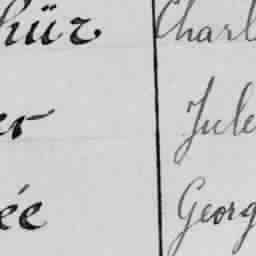 hür Charl
er Jule
ée Georg